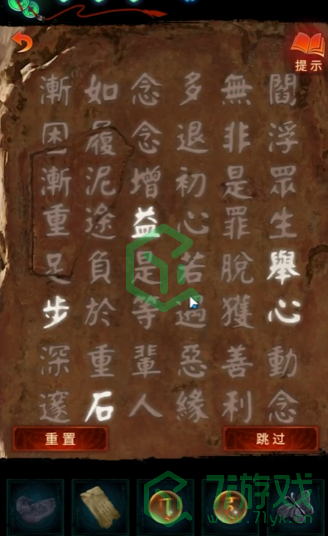 提示
閻浮眾生舉心動念
無非是罪脫獲善利
多退初心若遇惡緣
念念增益是等輩人
如履泥途負於重石
漸困漸重足步深邃
重置
跳过
7i游戏
www.71yk.cn